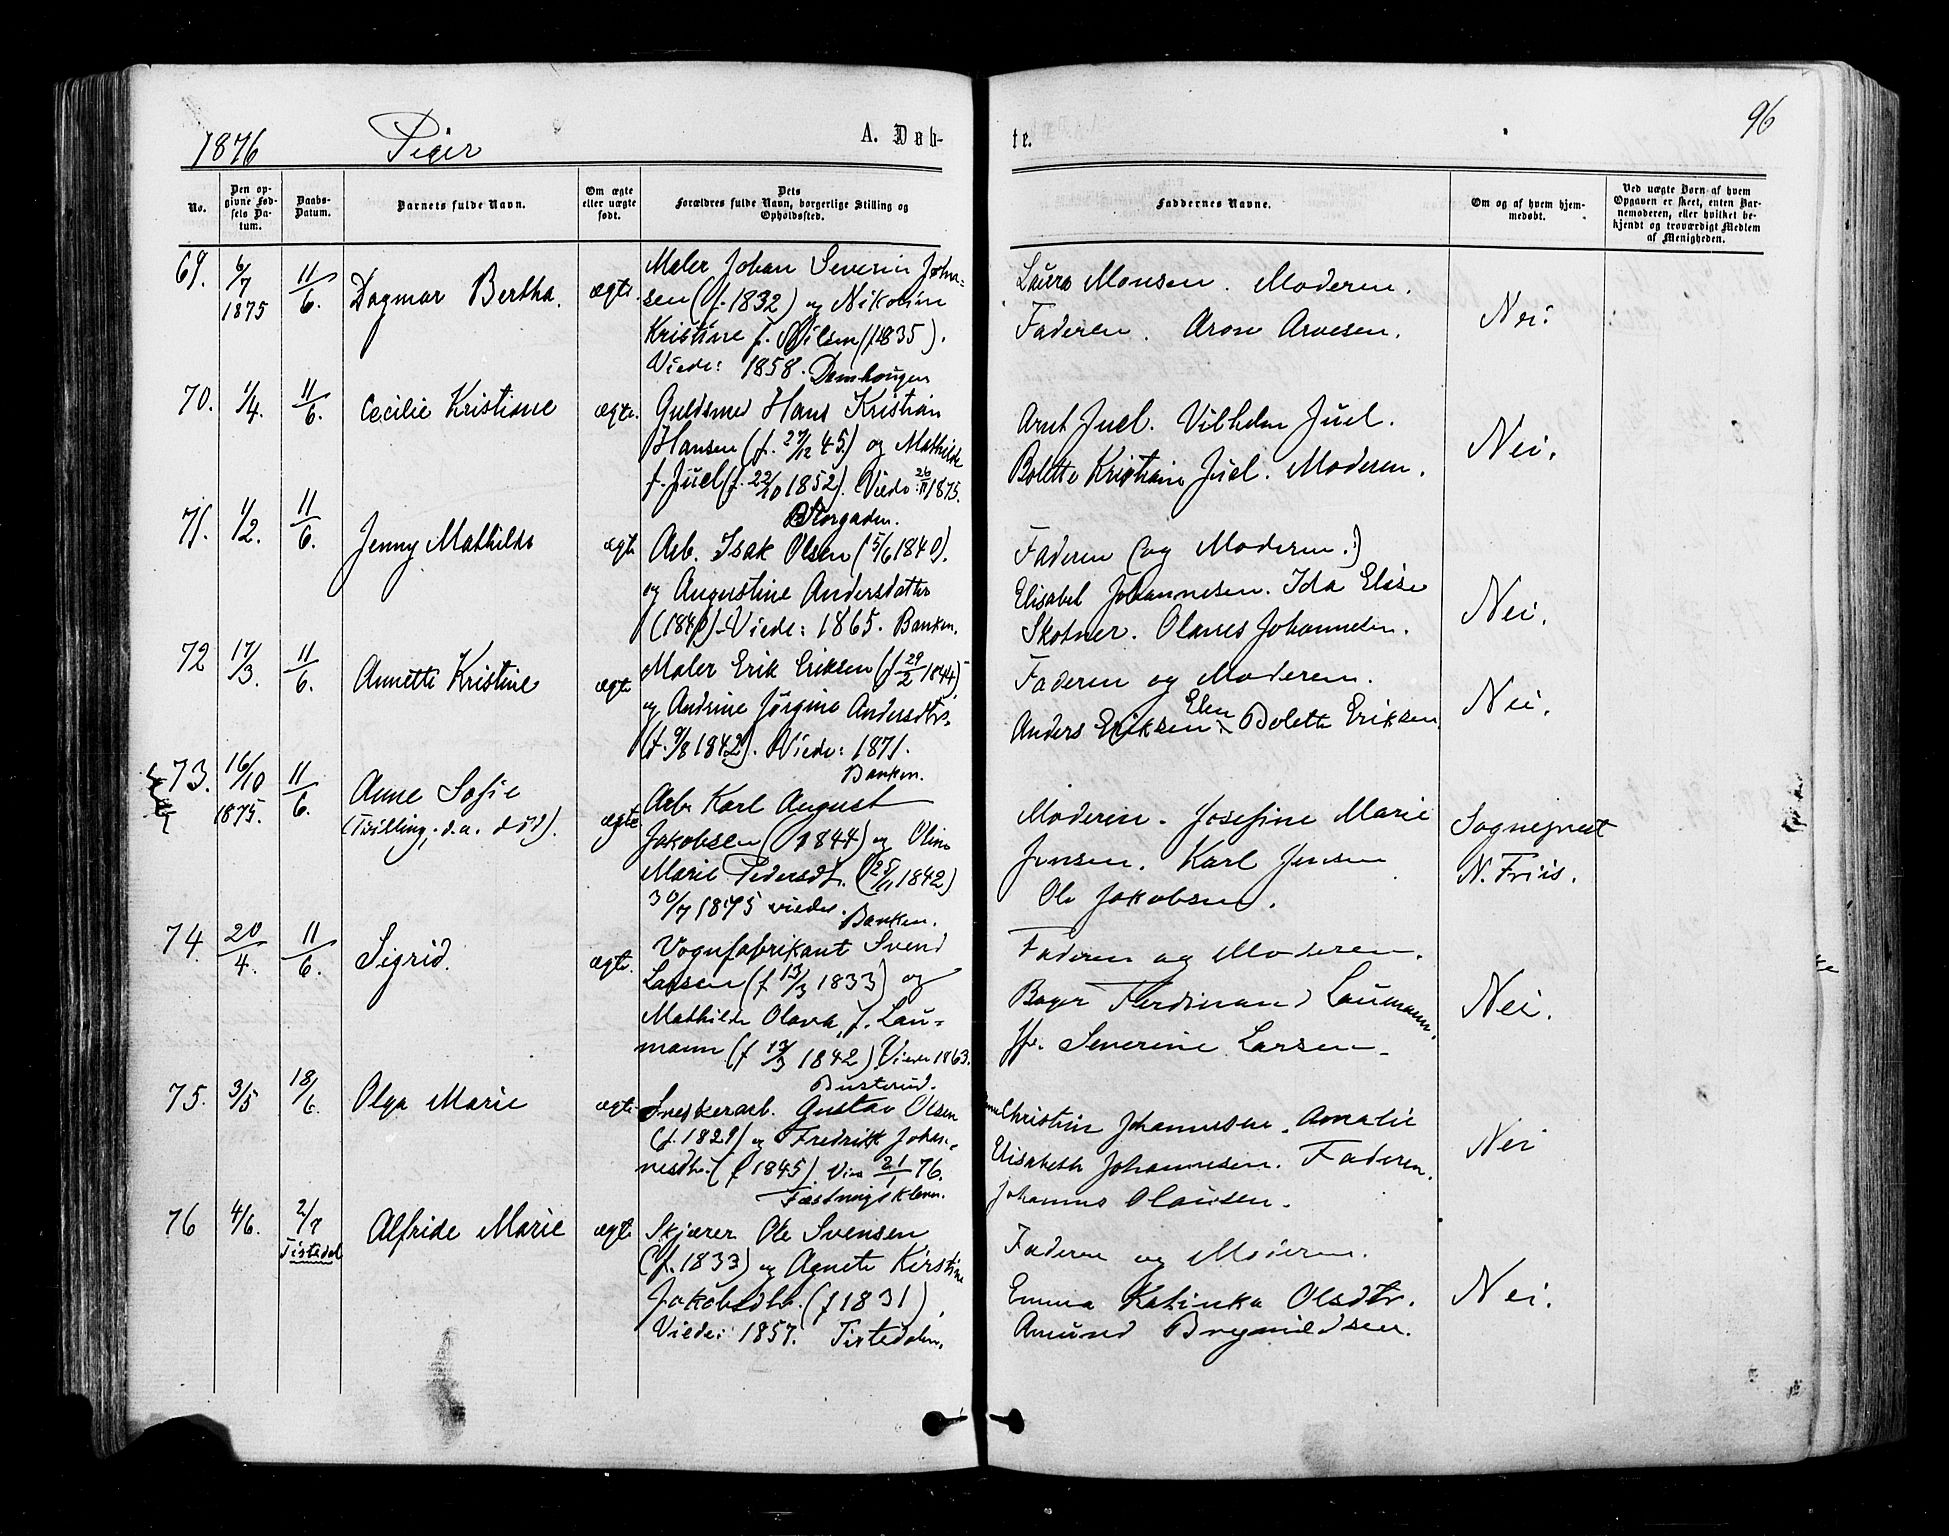 96
1876 Piger A. Døb-
te.
No.
Den op-
givne Fød-
sels Da-
tum.
Daabs-
Datum.
Barnets fulde Navn.
Om ægte
eller uægte
født.
Dets
Forældres fulde Navn, borgerlige Stilling og
Opholdssted.
Faddernes Navne.
Om og af hvem hjem-
medøbt.
Ved uægte Børn af hvem
Opgaven er skeet, enten Bar-
nemoderen, eller hvilket be-
kjendt og troværdigt Medlem
af Menigheden.
69. 6/7 1875 11/6. Dagmar Bertha. ægte.
Maler Johan Severin Johan-
sen (f. 1832) og Nikoline
Kristine f. Nilsen (f. 1835).
Viede: 1858. Damhougen
Laura Monsen. Moderen.
Faderen. Aron Arvesen.
Nei.
70. 1/4. 11/6. Cecilie Kristiane ægte.
Guldsmed Hans Kristian
Hansen (f. 27/12 45.) og Mathilde
f. Juel (f. 22/10 1852). Viede: 26/11 1875.
Storgaden.
Arnt Juel. Vilhelm Juel.
Bolette Kristiane Juel. Moderen.
Nei.
71. 1/2. 11/6. Jenny Mathilde ægte
Arb. Isak Olsen (15/6 1840).
og Augustine Andersdatter
Viede: 1865. Banken.
Faderen (og Moderen.)
Elisabet Johannesen. Ida Elise
Skotner. Olaves Johannesen.
Nei.
72 17/3. 11/6. Annette Kristine ægte
Maler Erik Eriksen (f 29/2 1844).
og Andrine Jørgine Andersdtr.
(f. 9/8 1842). Viede: 1871.
Banken.
Faderen og Moderen.
Anders Eriksen. Elen Bolette Eriksen
Nei.
73. 16/10 1875. 11/6. Anne Sofie
(Tvilling; d. a. død). ægte
Arb. Karl August
Jakobsen (1844) og Oline
Marie Pedersdt. (25/11 1842)
30/7 1875 viede. Banken.
Moderen. Josefine Marie
Jensen. Karl Jensen
Ole Jakobsen.
Sognepræst
N. Friis.
74. 20/4. 11/6. Sigrid. ægte.
Vognfabrikant Svend
Larsen (f 13/3 1833) og
Mathilde Olava, f. Lau-
mann (f 13/3 1842) Viede 1863.
Busterud.
Faderen og Moderen.
Bager Ferdinand Laumann.
Severine Larsen.
Nei.
75. 3/5 18/6. Olga Marie ægte
Snedkerarb. Gustav Olsen
(f. 1829) og Fredrikke Johan-
nesdtr. (f 1845). Viet 21/1 76.
Fæstningsklevn.
Christine Johannesen. Amalie
Elisabeth Johannesen. Faderen.
Johannes Olausen.
Nei
76 4/6. 2/7 Tistedal Alfride Marie ægte
Skjærer Ole Svensen
(f. 1833) og Agnete Kirstine
Jakobsdtr. (f 1831).
Viede: 1857. Tistedalen.
Faderen og Moderen.
Emma Katinka Olsdtr.
Amund Brynildsen.
Nei.